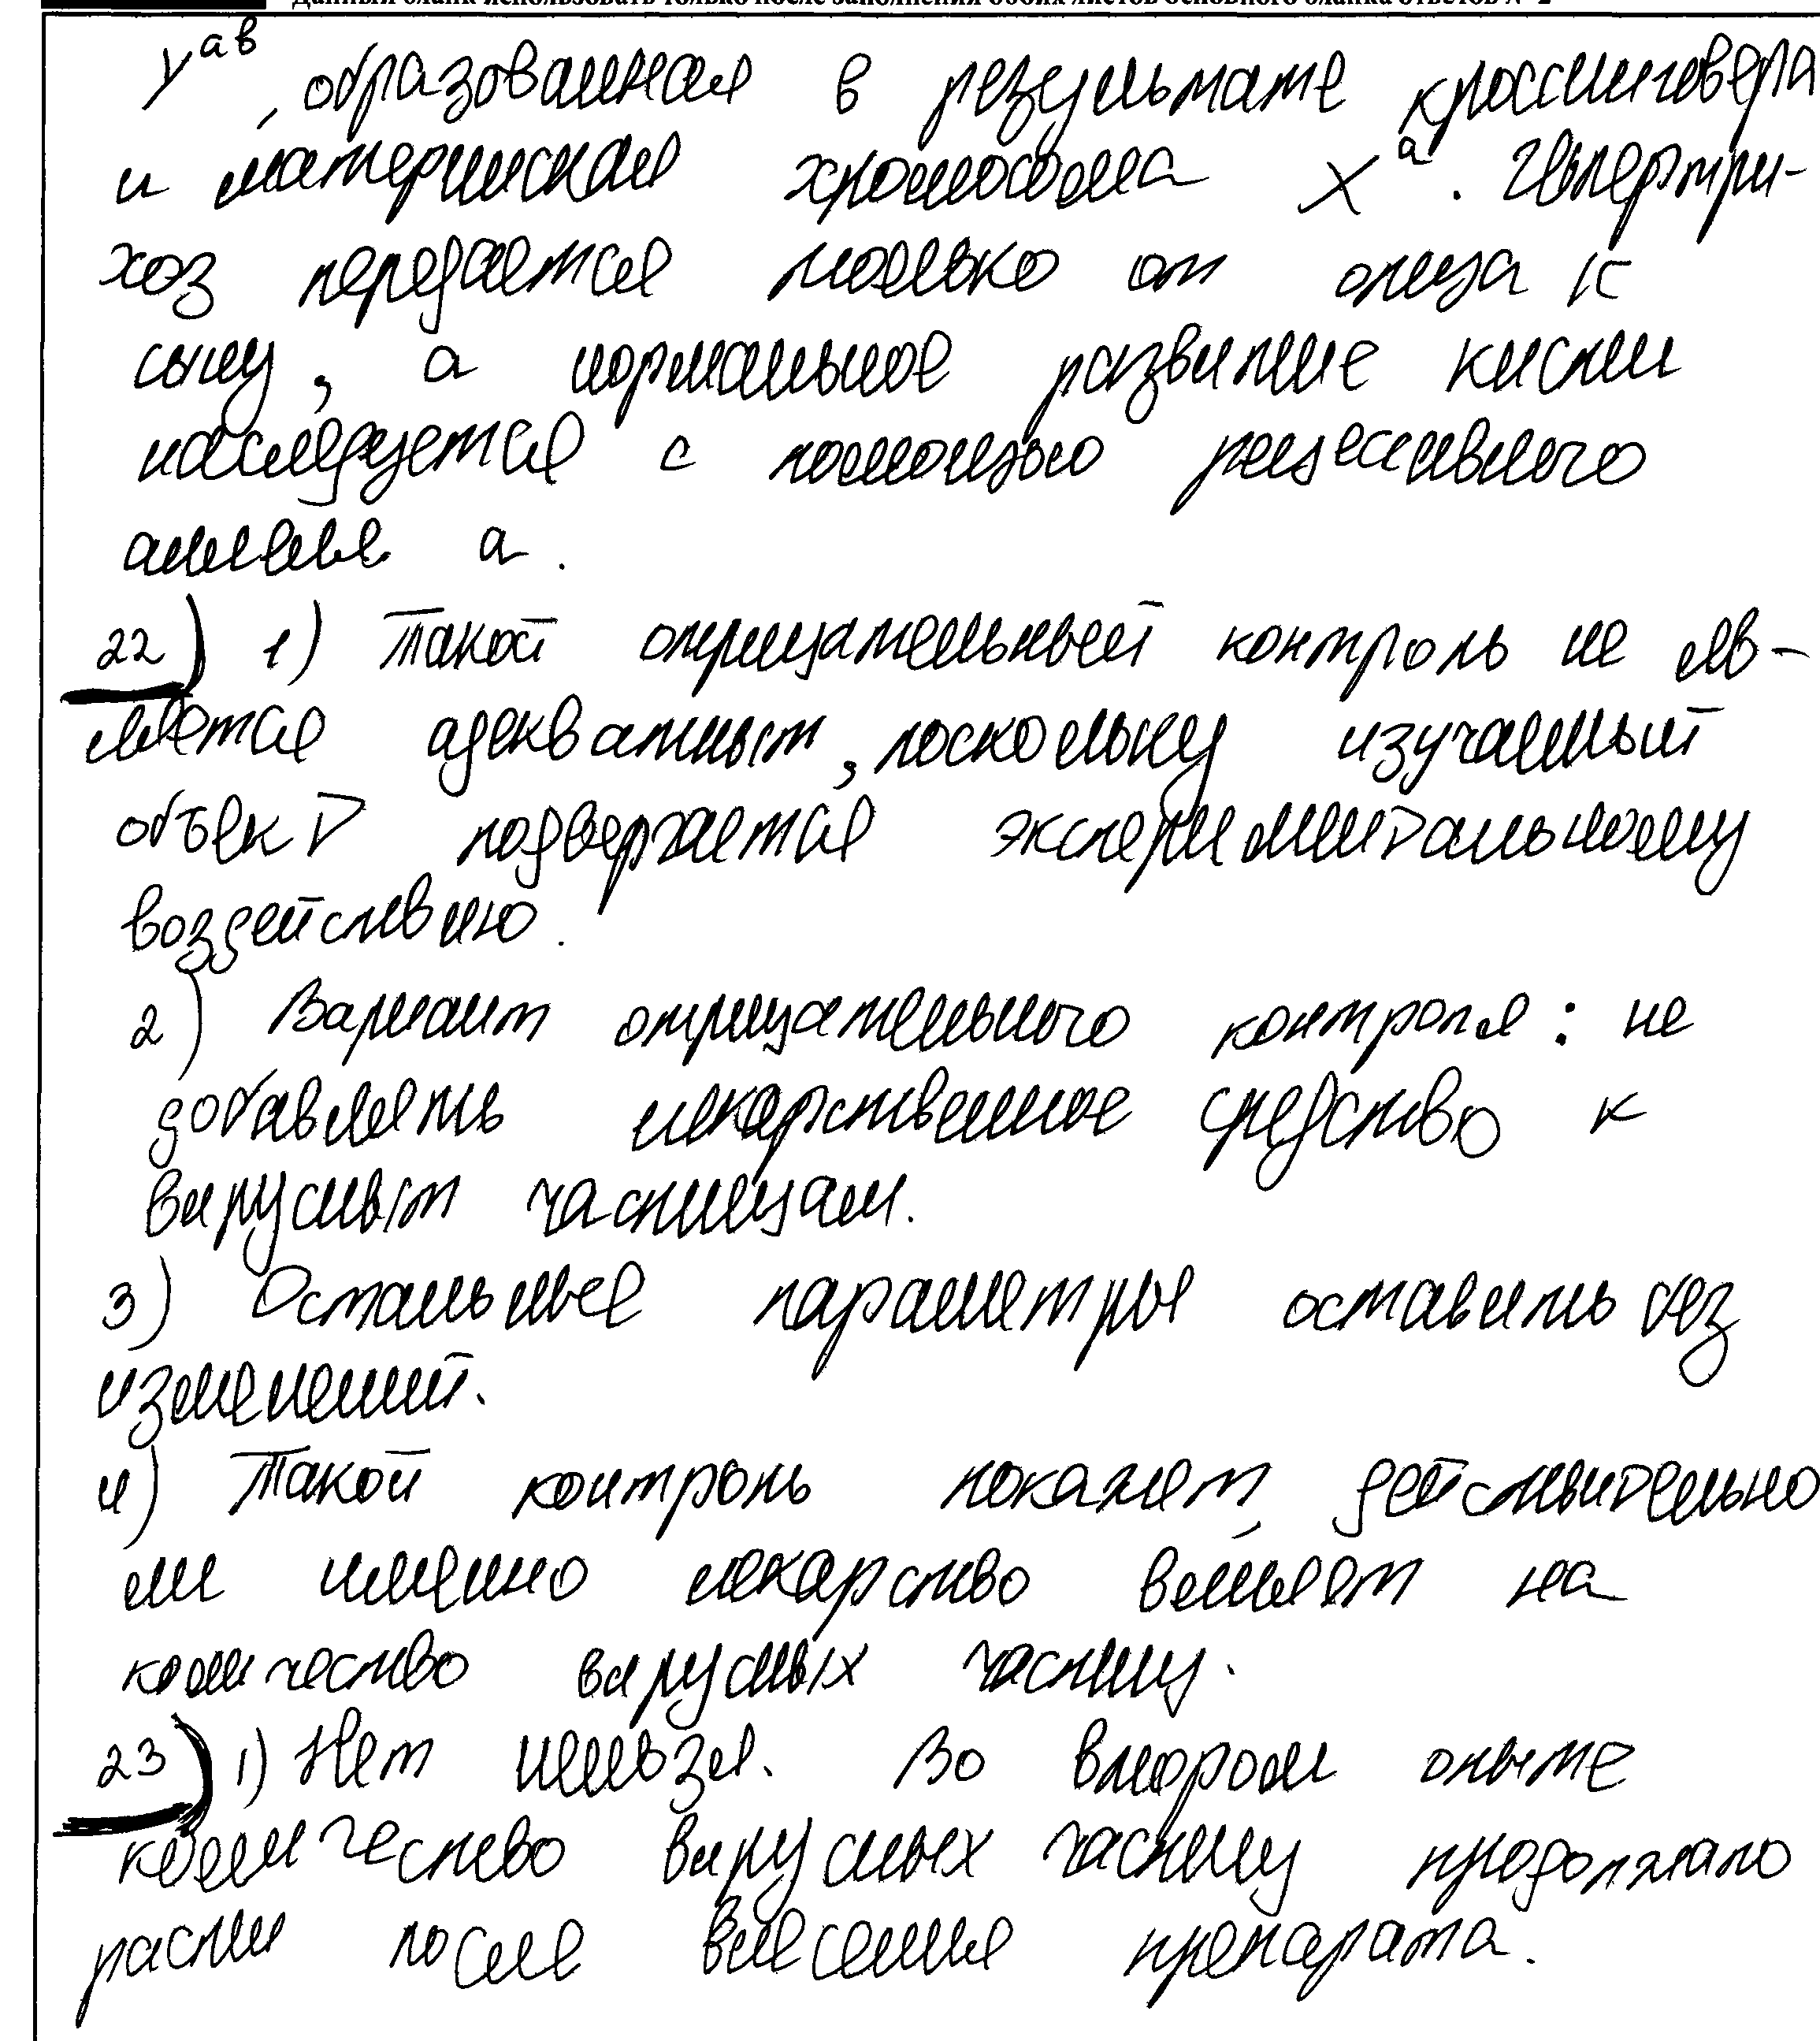 Данный бланк использовать только после заполнения обоих листов основного бланка ответов № 2
Y^ав, образованная в результате кроссинговера
и материнская хромосома X^а. Гипертри-
хоз передается только от отца к
сыну, а нормальное развитие кисти
наследуется с помощью рецессивного
аллеля а.
22) 1) Такой отрицательный контроль не яв-
ляется адекватным, поскольку изучаемый
объект подвергается экспериментальному
воздействию.
2) Вариант отрицательного контроля: не
добавлять лекарственное средство к
вирусным частицам.
3) Остальные параметры оставить без
изменений.
4) Такой контроль покажет, действительно
ли именно лекарство влияет на
количество вирусных частиц.
23) 1) Нет нельзя. Во втором опыте
количество вирусных частиц продолжало
расти после внесения препарата.